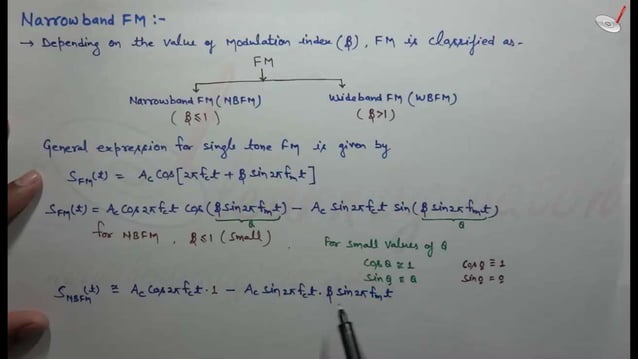 Narrowband FM :-
→ Depending on the value of modulation index (β), FM is classified as-
FM
Narrowband FM (NBFM) Wideband FM (WBFM)
(β≤1) (β>1)
General expression for single tone FM is given by
S_FM(t) = Ac Cos[2πfct + β sin2πfmt]
S_FM(t) = Ac Cos2πfct cos(β sin2πfmt) – Ac sin2πfct sin(β sin2πfmt)
θ θ
for NBFM, β≤1 (small). For small values of θ
Cosθ ≅ 1 Cosθ ≅ 1
Sinθ ≅ θ Sinθ = θ
S_NBFM(t) ≅ Ac Cos2πfct · 1 – Ac Sin2πfct · β sin2πfmt